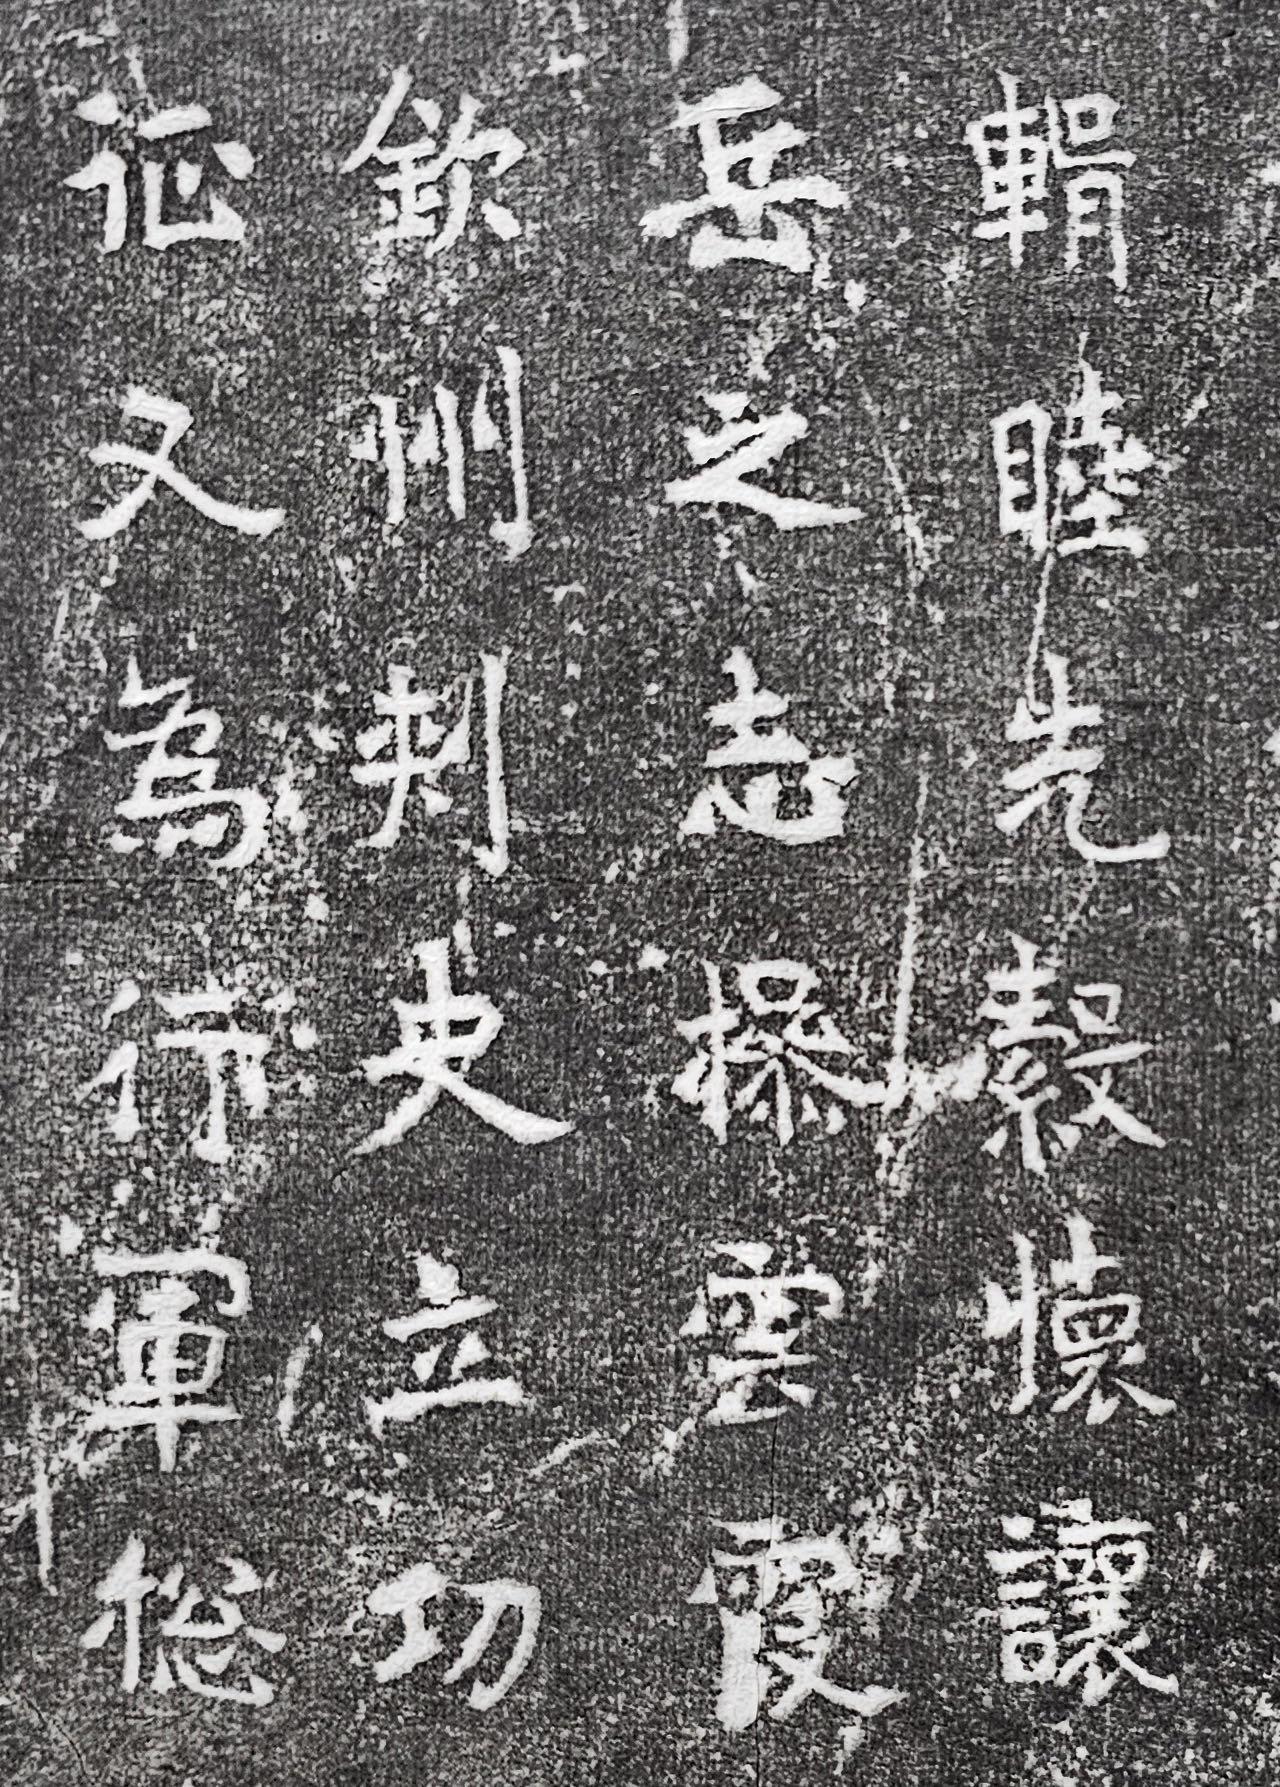 輯睦先縠懷讓
岳之志操雲霞
欽州刺史立功
征又為行軍揔